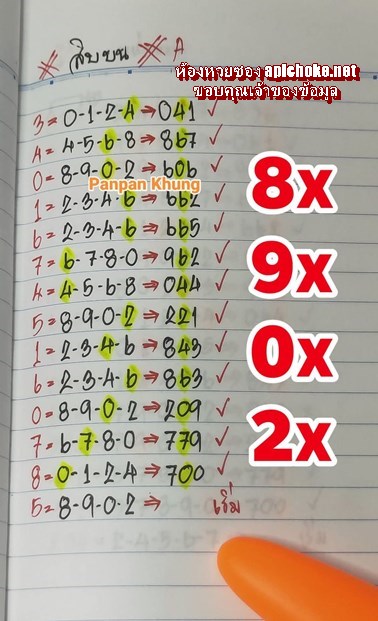 ※ สิบบน ※ A
ห้องหวยซอง apichoke.net
ขอบคุณเจ้าของข้อมูล
3=0-1-2-4⇒041 ✓
4=4-5-6-8⇒867 ✓
0=8-9-0-2⇒606 ✓
Panpan Khung
1=2-3-4-6⇒662 ✓
6=2-3-4-6⇒665 ✓
7=6-7-8-0⇒962 ✓
4=4-5-6-8⇒044 ✓
5=8-9-0-2⇒221 ✓
1=2-3-4-6⇒843 ✓
6=2-3-4-6⇒863 ✓
0=8-9-0-2⇒209 ✓
7=6-7-8-0⇒779 ✓
8=0-1-2-4⇒700 ✓
5=8-9-0-2⇒ เริ่ม
8x
9x
0x
2x